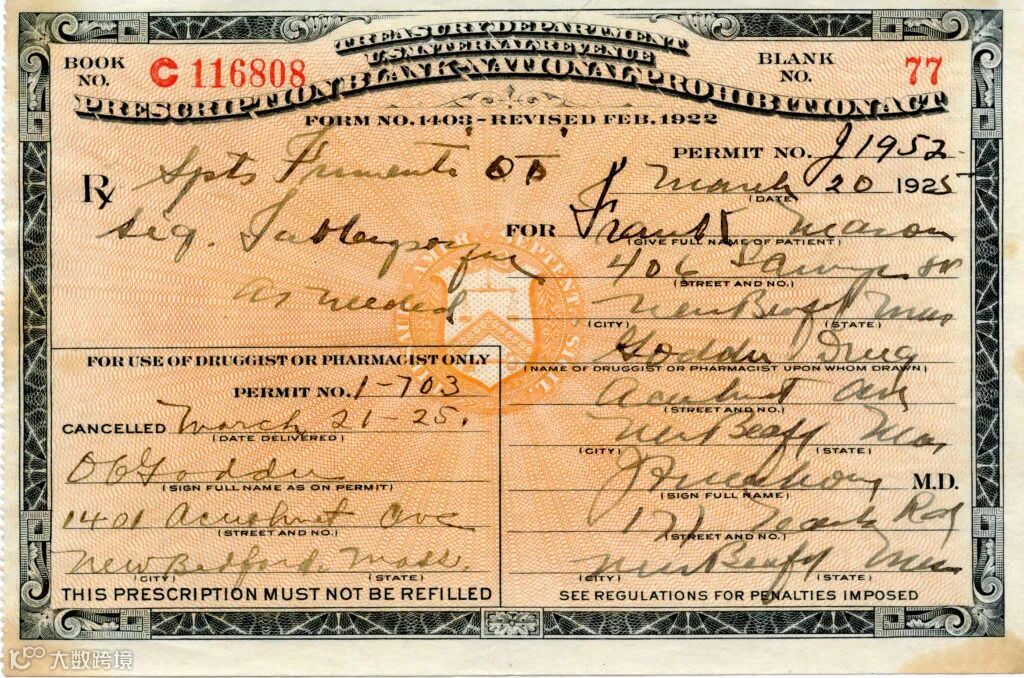 TREASURY DEPARTMENT
U.S. INTERNAL REVENUE
PRESCRIPTION BLANK-NATIONAL PROHIBITION ACT
BOOK NO. C 116808
BLANK NO. 77
FORM NO. 1403-REVISED FEB. 1922
PERMIT NO. J1952
Rx
Spts Frumenti
March 20 1925
(DATE)
Sig.
as needed
FOR Frank
(GIVE FULL NAME OF PATIENT)
406
(STREET AND NO.)
New Bedfd Mass
(CITY) (STATE)
Goddu Drug
(NAME OF DRUGGIST OR PHARMACIST UPON WHOM DRAWN)
Acushnet Ave
(STREET AND NO.)
New Bedfd Mas
(CITY) (STATE)
M.D.
(SIGN FULL NAME)
(STREET AND NO.)
New Bedfd Mass
(CITY) (STATE)
SEE REGULATIONS FOR PENALTIES IMPOSED
FOR USE OF DRUGGIST OR PHARMACIST ONLY
PERMIT NO. 1-703
CANCELLED March 21-25.
(DATE DELIVERED)
Goddu
(SIGN FULL NAME AS ON PERMIT)
1401 Acushnet Ave
(STREET AND NO.)
New Bedford. Mass.
(CITY) (STATE)
THIS PRESCRIPTION MUST NOT BE REFILLED
大数跨境